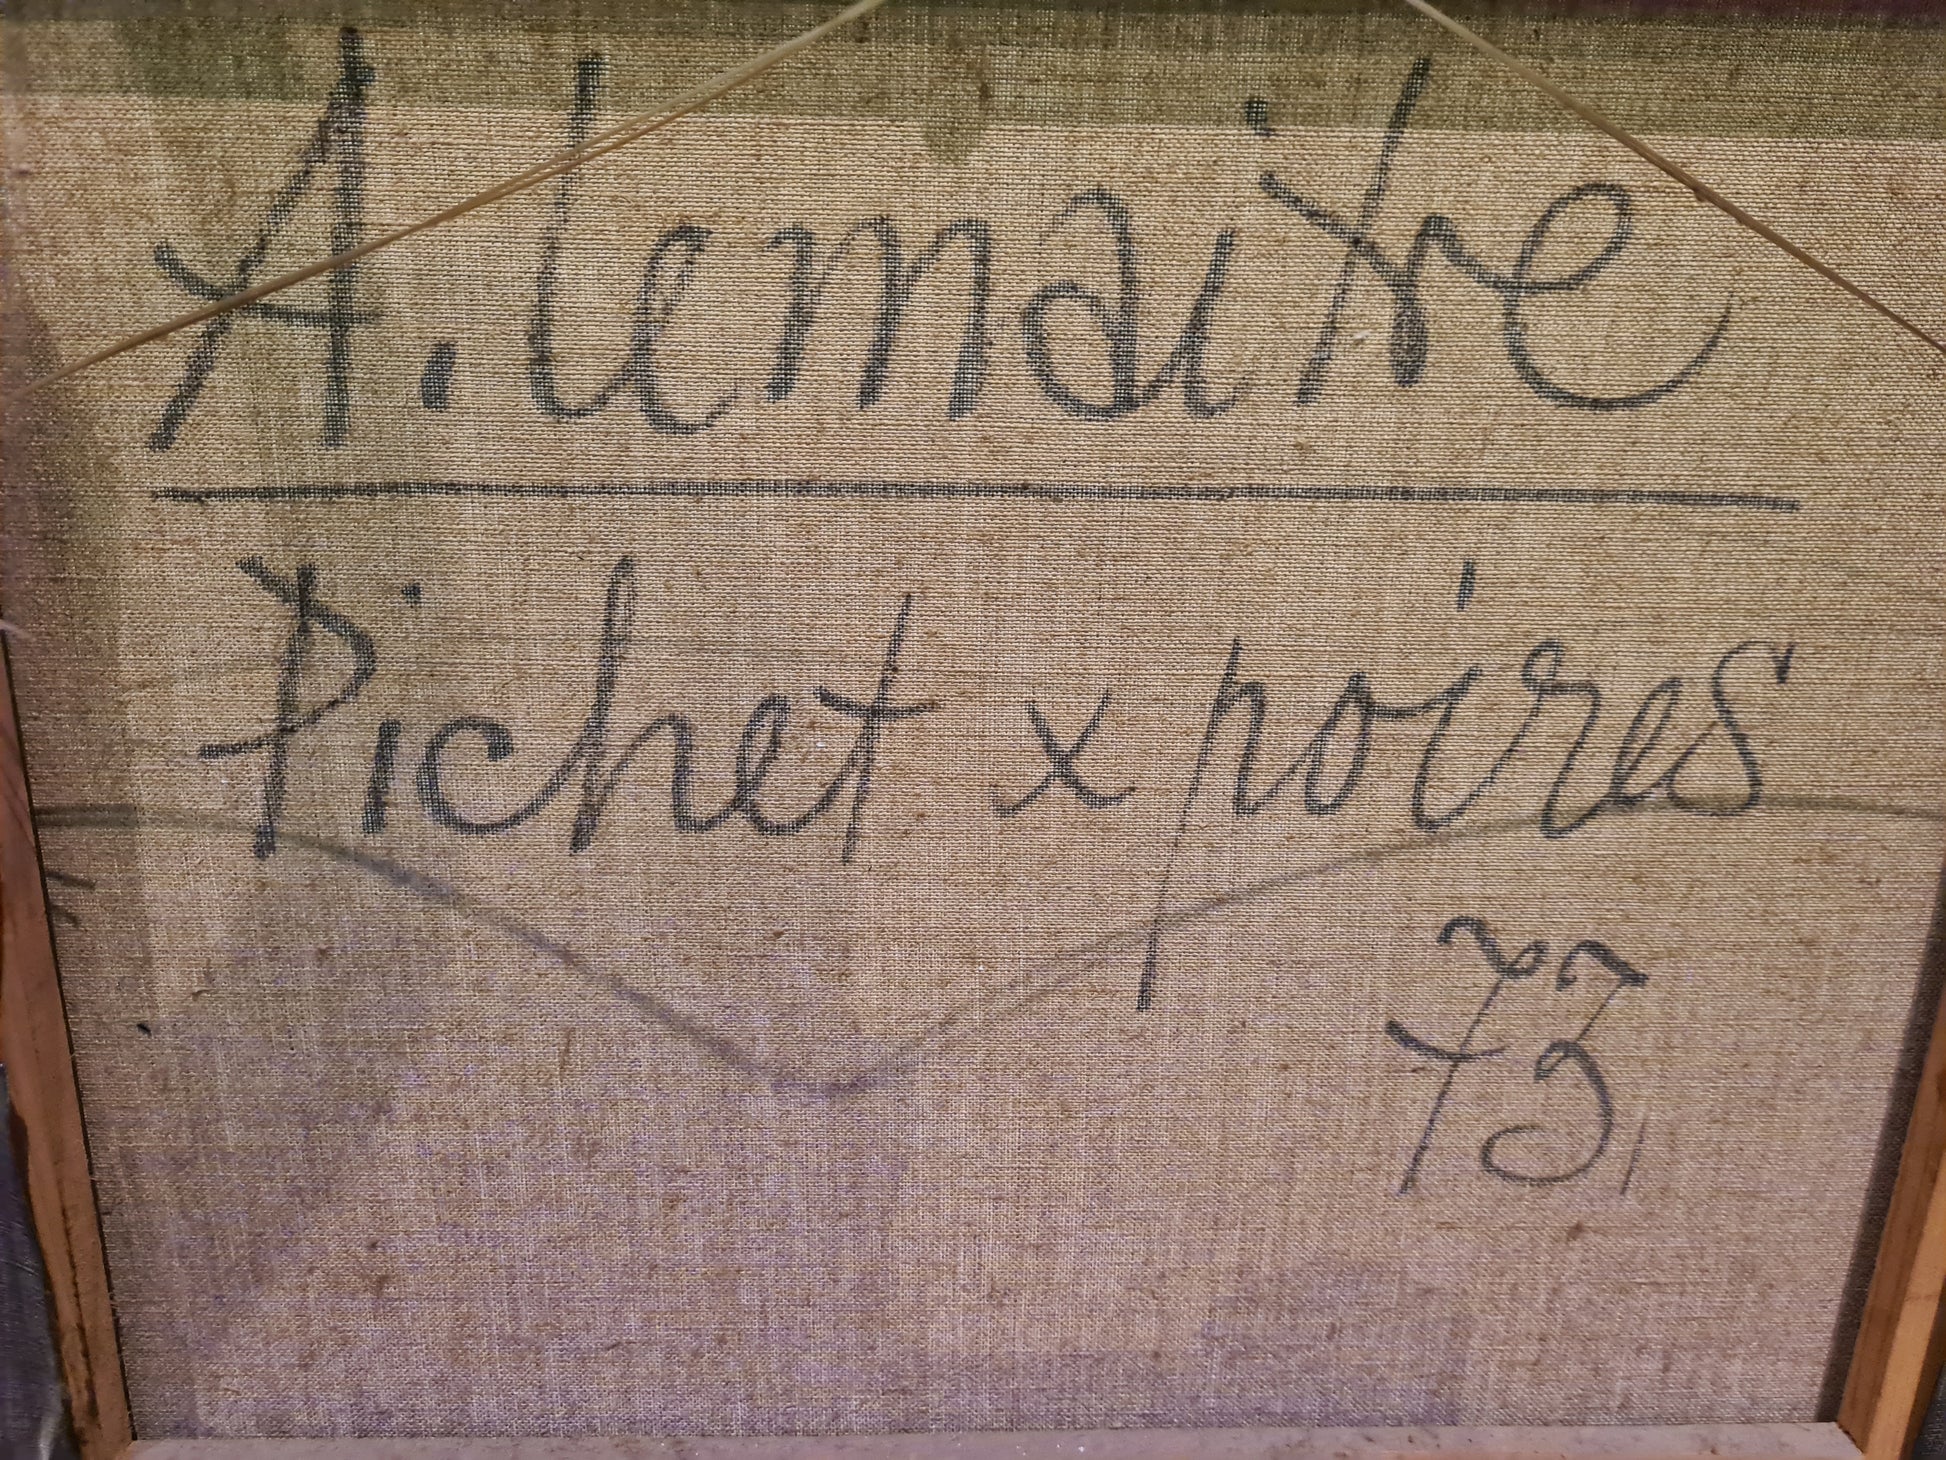 A. lemaitre
Pichet x poires
73,